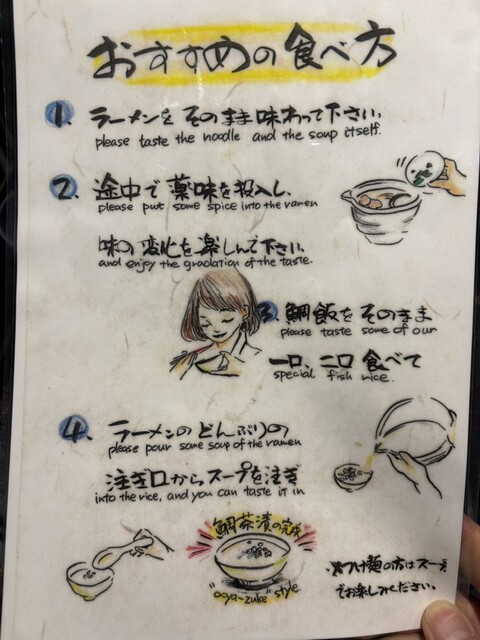 おすすめの食べ方
1. ラーメンをそのまま味わって下さい。
please taste the noodle and the soup itself.
2. 途中で薬味を投入し、
please put some spice into the ramen
味の変化を楽しんで下さい。
and enjoy the gradation of the taste.
3. 鯛飯をそのまま
please taste some of our
一口、二口食べて
special fish rice.
4. ラーメンのどんぶりの
please pour some soup of the ramen
注ぎ口からスープを注ぎ
into the rice, and you can taste it in
鯛茶漬の完成
"ocya-zuke" style
※つけ麺の方はスー
でお楽しみください。